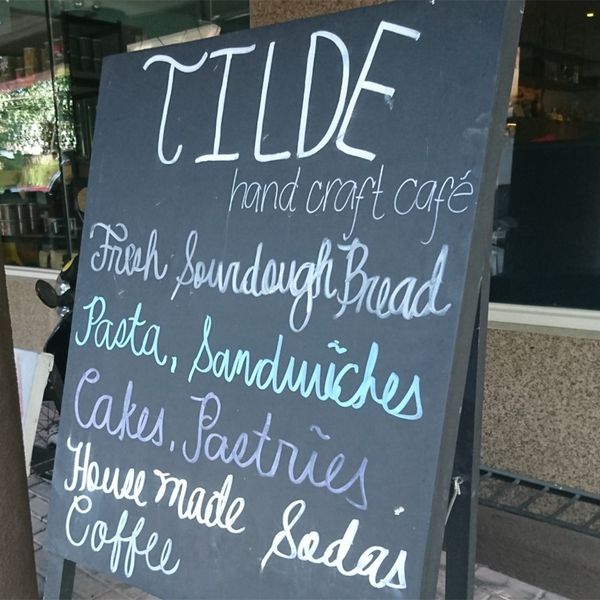 TILDE
hand craft café
Fresh Sourdough Bread
Pasta, Sandwĩches
Cakes, Pastrĩes
House made Sodas
Coffee